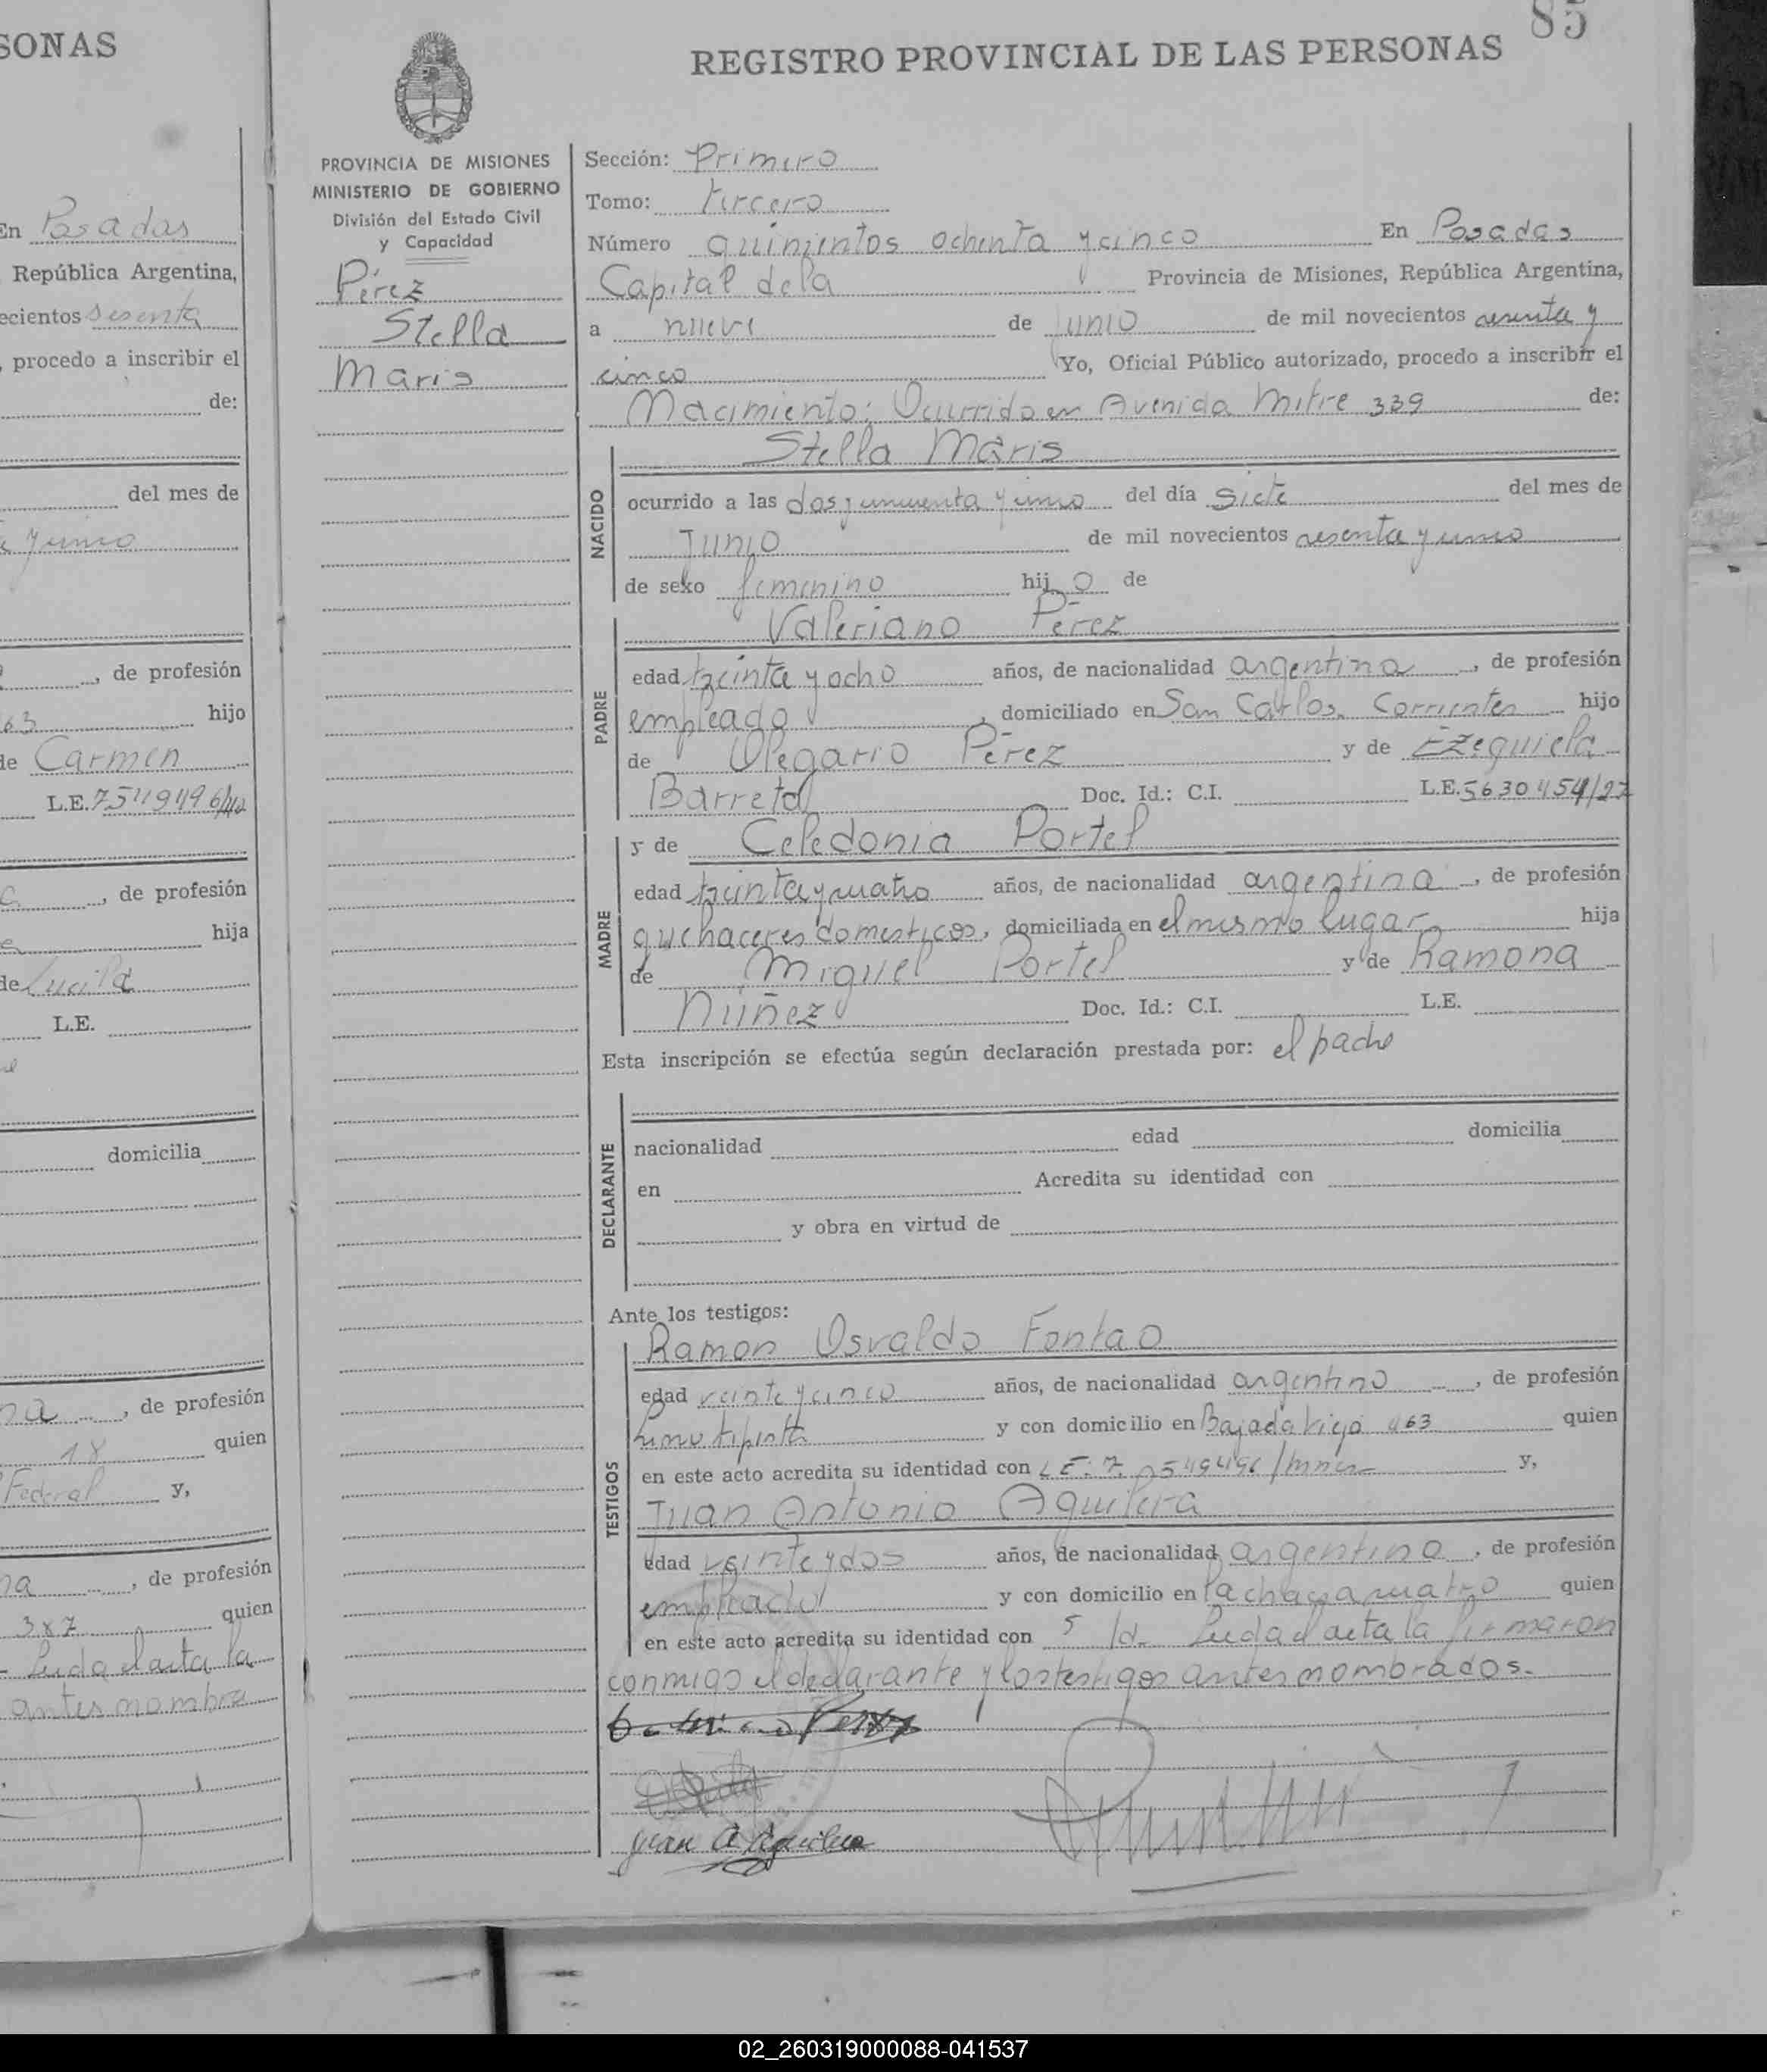 SONAS
En Posadas
República Argentina,
ecientos sesenta
, procedo a inscribir el
de:
del mes de
de profesión
63 hijo
de Carmen
L.E. 7549496/
, de profesión
hija
de Lucila
L.E.
domicilia
na , de profesión
18 quien
Federal y,
na , de profesión
3x7 quien
Leida el acta la
antes nombra
85
REGISTRO PROVINCIAL DE LAS PERSONAS
PROVINCIA DE MISIONES
MINISTERIO DE GOBIERNO
División del Estado Civil
y Capacidad
Pérez
Stella
Maris
Sección: Primero
Tomo: tercero
Número quinientos ochenta y cinco En Posadas
Capital dela Provincia de Misiones, República Argentina,
a nueve de junio de mil novecientos sesenta y
cinco Yo, Oficial Público autorizado, procedo a inscribir el
Nacimiento: Ocurrido en Avenida Mitre 339 de:
NACIDO
Stella Maris
ocurrido a las dos y cincuenta y cinco del día siete del mes de
Junio de mil novecientos sesenta y cinco
de sexo femenino hijo de
PADRE
Valeriano Pérez
edad treinta y ocho años, de nacionalidad argentina, de profesión
empleado, domiciliado en San Carlos. Corrientes hijo
de Olegario Pérez y de Ezequiela
Barreto Doc. Id.: C.I. L.E. 5630454/27
MADRE
y de Celedonia Portel
edad treinta y cuatro años, de nacionalidad argentina, de profesión
quehaceres domesticos, domiciliada en el mismo lugar hija
de Miguel Portel y de Ramona
Núñez Doc. Id.: C.I. L.E.
Esta inscripción se efectúa según declaración prestada por: el padre
DECLARANTE
nacionalidad edad domicilia
en Acredita su identidad con
y obra en virtud de
Ante los testigos:
TESTIGOS
Ramon Osvaldo Fontao
edad veinte y cinco años, de nacionalidad argentino, de profesión
Linotipista y con domicilio en Bajada Vieja 463 quien
en este acto acredita su identidad con L E. 7.549496/ y,
Juan Antonio Aguilera
edad veinte y dos años, de nacionalidad argentino, de profesión
empleado y con domicilio en Chacra cuatro quien
en este acto acredita su identidad con 5 /d. Leida el acta la firmaron
conmigo el declarante y los testigos antes nombrados.
Juan A Aguilera
02_260319000088-041537